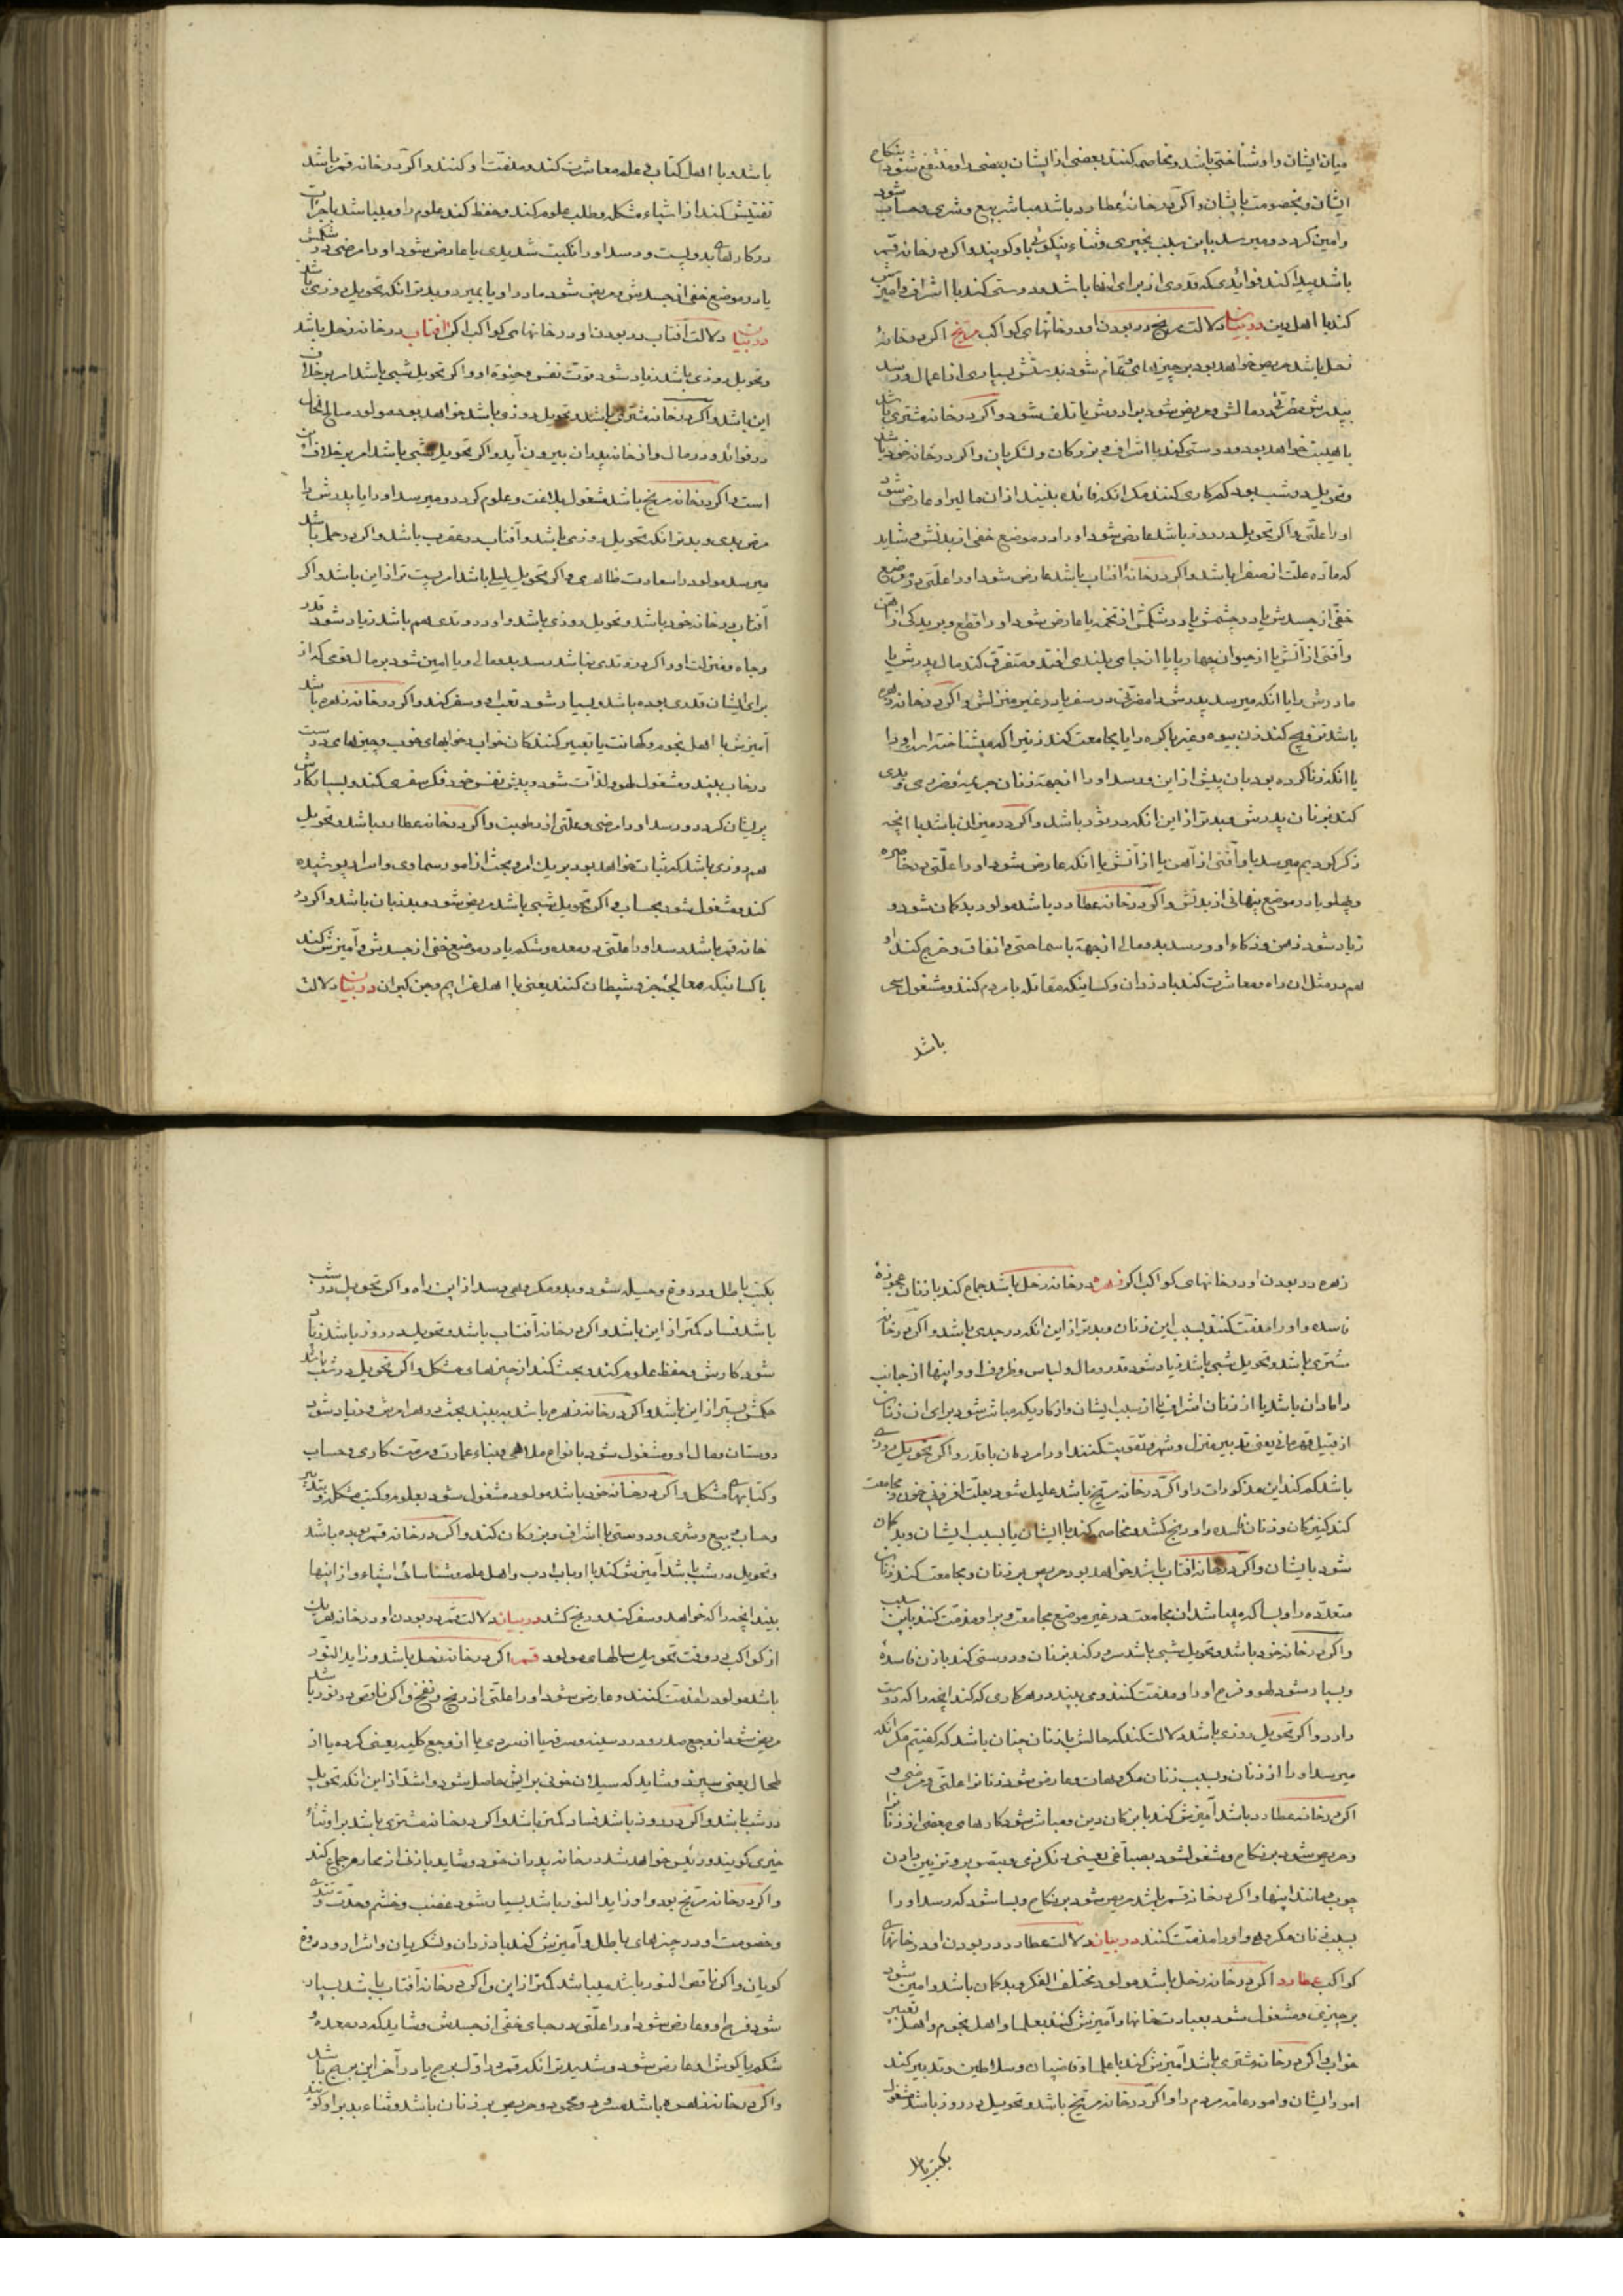 میان ایشان را و شناختی باشد و مخاصمه کنند بعضی از ایشان بعضی را و منتفع شود بنکاح
ایشان و بخصومت با ایشان و اگر در خانهٔ عطارد باشد مباشر بیع و شری و حساب شود
و امین گردد و میرسد باین سبب بخیری و ثناء نیکوئی باو گویند و اگر در خانه قمر
باشد پیدا کند فوائدی که قدری از برای انها باشد و دوستی کند با اشراف و امیزش
کند با اهل دین در بیان دلالت مریخ در بودن او در خانهای کواکب مریخ اگر در خانهٔ
زحل باشد حریص خواهد بود بر چیزهای و تمام شود بدستش بسیاری از اعمال و رسد
بپدرش ضرری در مالش و مریض شود برادرش یا تلف شود و اگر در خانه مشتری باشد
با هیبت خواهد بود و دوستی کند با اشراف و بزرکان و لشکریان و اگر در خانه خود باشد
و تحویل در شب بود کم کاری کنند مکر انکه فائده بینند از ان مالیرا و عارض شود
او را علتی و اگر تحویل در روز باشد عارض شود او را در موضع خفی از بدنش و شاید
که ماده علت از صفرا باشد و اگر در خانهٔ افتاب باشد عارض شود او را علتی در موضع
خفی از جسدش یا در چشمش یا در شکمش از تخمه یا عارض شود او را قطع و بریدکی از اهن
و آفتی از آتش یا از حیوان چهار پایا از جای بلندی افتد و متفرق کند مال پدرش یا
مادرش را یا انکه میرسد پدرش را مضرتی در سفر یا در غیر منزلش و اگر در خانه زهره
باشد تزویج کند زن بیوه و غیر باکره را یا مجامعت کند زنیرا که میشناختند او را
یا انکه زنا کرده بود بان پیش از این و رسد او را از جهة زنان جریمه و ضرری و بدی
کند بزنان پدرش و بدتر از این انکه در ثور باشد و اگر در میزان باشد با انچه
ذکر کردیم میرسد باو آفتی از آهن یا از آتش یا انکه عارض شود او را علتی در خاصره
و پهلو یا در موضع پنهانی از بدنش و اگر در خانه عطارد باشد مولود بدکمان شود و
زیاد شود ذهن و ذکاء او و رسد بد و مالی از جهة با سماحتی و انفاق و خرج کند او
هم در مثل ان راه و معاشرت کند با دزدان و کسانیکه مقاتله با مردم کنند و مشغول سعی
باشد
باشد و با اهل کتاب و علم معاشرت کند و مذمت او کنند و اگر در خانه قمر باشد
تفتیش کند از اشیاء مشکله و طلب علوم کند و حفظ کند علوم را و میباشد با جرأت
در کارهای بد و پست و رسد او را نکبت شدیدی یا عارض شود او را مرضی در شکمش
یا در موضع خفی از جسدش و مریض شود مادر او یا بمیرد و بدتر انکه تحویل روزی باشد
در بیان دلالت آفتاب در بودن او در خانهای کواکب اگر افتاب در خانه زحل باشد
و تحویل روزی باشد زیاد شود قوت نفس و حیوة او و اگر تحویل شبی باشد امر بر خلاف
این باشد و اگر در خانه مشتری باشد و تحویل روزی باشد خواهد بود مولود صالح الحال
در فوائد و در مال و از خانه پدران بیرون آید و اگر تحویل شبی باشد امر بر خلاف این
است و اگر در خانه مریخ باشد مشغول بلاغت و علوم گردد و میرسد او را یا پدرش را
مرض بدی و بدتر انکه تحویل روزی باشد و آفتاب در عقرب باشد و اگر در حمل باشد
میرسد مولود را سعادت ظاهری و اگر تحویل لیلی باشد امر پست تر از این باشد و اگر
آفتاب در خانه خود باشد و تحویل روزی باشد و او در وتدی هم باشد زیاد شود قدر
و جاه و منزلت او و اگر در وتدی نباشد رسد بد و مالی و یا امین شود بر مال قومی که از
برای ایشان قدری بوده باشد و بسیار شود تعب او و سفر کند و اگر در خانه زهره باشد
آمیزش با اهل نجوم و کهانت یا تعبیر کنندکان خواب خوابهای خوب و چیزهای درست
در خاب بیند و مشغول لهو و لذات شود و پیش نفس خود فکر سفری کند و بسیار کارش
پریشان کردد و رسد او را مرضی و علتی از رطوبت و اگر در خانه عطارد باشد و تحویل
هم روزی باشد کم ثبات خواهد بود بر یک امر و بحث از امور سماوی و اسرار پوشیده
کند و مشغول شود بحساب و اگر تحویل شبی باشد مریض شود و بد زبان باشد و اگر در
خانه قمر باشد رسد او را علتی در معده و شکم یا در موضع خفی از جسدش و آمیزش کند
با کسانیکه معالجه جن و شیطان کنند یعنی با اهل عزایم و جن کیران در بیان دلالت
زهره در بودن او در خانهای کواکب اگر زهره در خانه زحل باشد جماع کند با زنان عجوزهٔ
فاسده و او را مذمت کنند بسبب این زنان و بدتر از این انکه در جدی باشد و اگر در خانه
مشتری باشد و تحویل شبی باشد زیاد شود قدر و مال و لباس و ظروف او و اینها از جانب
دامادان باشد یا از زنان اشراف یا از سبب ایشان و از کار دیکر مباشر شود برای ان زنان
از قبیل قهرمانی یعنی تدبیر منزل و شهر و تقویت کنند او را مردمان با قدر و اگر تحویل روزی
باشد کم کند این مذکورات را و اگر در خانه مریخ باشد علیل شود بعلت افزونی خون و مجامعت
کند کنیزکان و زنان فاسده را و رنج کشد و مخاصمه کند با ایشان یا بسبب ایشان و بد کمان
شود بایشان و اگر در خانه افتاب باشد خواهد بود حریص بر زنان و مجامعت کند زنان
متعدده را و بسا که میباشد ان مجامعت در غیر موضع مجامعت و بر او مذمت کنند باین سبب
و اگر در خانه خود باشد و تحویل شبی باشد سرور کند بزنان و دوستی کند با زن فاسدهٔ
و بسیار شود لهو و فرح او را و مذمت کنند و می بیند در هر کاری که کند انچه را که دوست
دارد و اگر تحویل روزی باشد دلالت کند که حالش با زنان چنان باشد که کفتیم مکر انکه
میرسد او را از زنان و بسبب زنان مکروهات و عارض شود زنانرا علتی و مرضی و
اگر در خانه عطارد باشد آمیزش کند با بزرکان دین و مباشر شود کارهای بعضی از زنانرا
و حریص شود بر نکاح و مشغول شود بصباغی یعنی رنکرزی و بتصویر و تزیین دادن
چوب و مانند اینها و اگر در خانه قمر باشد حریص شود بر نکاح و بسا شود که رسد او را
بسبب زنان مکروهی و او را مذمت کنند در بیان دلالت عطارد در بودن او در خانهای
کواکب عطارد اگر در خانه زحل باشد مولود مختلف الفکر و بدکمان باشد و امین شود
بر چیزی و مشغول شود بعبادت خانها و آمیزش کند بعلما و اهل نجوم و اهل تعبیر
خواب و اگر در خانه مشتری باشد آمیزش کند با علما و قاضیان و سلاطین و تدبیر کند
امور ایشان و امور عامه مردم را و اگر در خانه مریخ باشد و تحویل در روز باشد مشغول
بکتب باطل
بکتب باطل و دروغ و حیله شود و بد و مکروهی رسد از این راه و اگر تحویل در شب
باشد فساد کمتر از این باشد و اگر در خانه آفتاب باشد و تحویل در روز باشد زیاد
شود کارش و حفظ علوم کند و بحث کند از چیزهای مشکل و اگر تحویل در شب باشد
حکمش پستر از این باشد و اگر در خانه زهره باشد بد بیند بحث در هر امرش و زیاد شود
دوستان و مال او و مشغول شود بانواع ملاهی و بناء عمارت و مرمت کاری و حساب
و کتابهای مشکل و اگر در خانه خود باشد مولود مشغول شود بعلوم و کتب مشکله و تدبیر
و حساب و بیع و شری و دوستی با اشراف و بزرکان کند و اگر در خانه قمر بوده باشد
و تحویل در شب باشد آمیزش کند با ارباب ادب و اهل علم و شناسائی اشیاء و از اینها
بیند انچه را که خواهد و سفر کند و رنج کشد در بیان دلالت قمر در بودن او در خانه هر یک
از کواکب در وقت تحویل سالهای مولود قمر اگر در خانه زحل باشد و زاید النور
باشد مولود را مذمت کنند و عارض شود او را علتی از ریح و نفخ و اگر ناقص در نور باشد
مریض شود از وجع صدر و درد سینه و سرفه یا از سردی یا از وجع کلیه یعنی کرده یا از
طحال یعنی سپرز و شاید که سیلان خونی برایش حاصل شود و اشد از این انکه تحویل
در شب باشد و اگر در روز باشد فساد کمتر باشد و اگر در خانه مشتری باشد بر او ثناء
خیری کویند و رئیس خواهد شد در خانه پدران خود و شاید با زنی از محارم جماع کند
و اگر در خانه مریخ بود و او زاید النور باشد بسیار شود غضب و خشم و حدت و تندی
و خصومت او در چیزهای باطل و آمیزش کند با دزدان و لشکریان و اشرار و دروغ
کویان و اگر ناقص النور باشد میباشد کمتر از این و اگر در خانه آفتاب باشد بسیار
شود فرح او و عارض شود او را علتی در جای خفی از جسدش و شاید که در معده و
شکم یا کوش او عارض شود و شدیدتر انکه قمر در اول برج یا در آخر این برج باشد
و اگر در خانه زهره باشد مسرور و محمود و حریص بر زنان باشد و ثناء بد بر او کویند